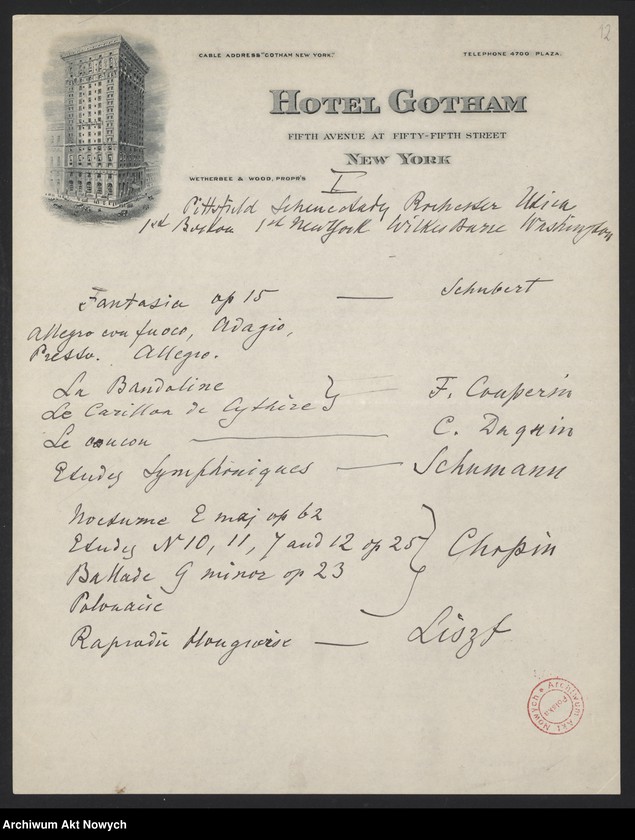 12
CABLE ADDRESS "GOTHAM NEW YORK."
TELEPHONE 4700 PLAZA.
HOTEL GOTHAM
FIFTH AVENUE AT FIFTY-FIFTH STREET
NEW YORK
WETHERBEE & WOOD, PROPR'S
I
Pittsfield Schenectady Rochester Utica
1st Boston 1st New York Wilkes Barre Washington
Fantasia op 15 — Schubert
Allegro con fuoco, Adagio,
Presto. Allegro.
La Bandoline
Le Carillon de Cythère } F. Couperin
Le coucou — C. Daquin
Etudes Symphoniques — Schumann
Nocturne E maj op 62
Etudes N 10, 11, 7 and 12 op 25 } Chopin
Ballade G minor op 23
Polonaise
Rapsodie Hongroise — Liszt
Archiwum Akt Nowych
Archiwum Akt Nowych